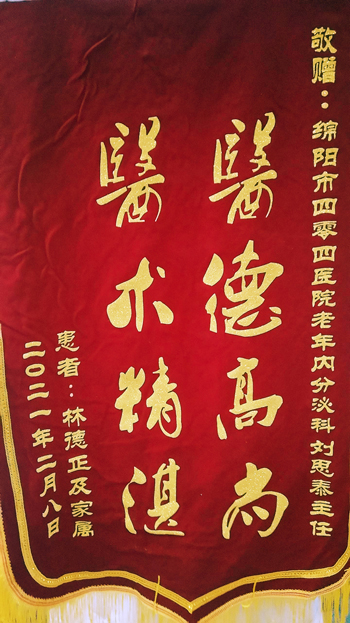 敬赠：绵阳市四零四医院老年内分泌科刘思泰主任
醫德高尚
醫术精湛
患者：林德正及家属
二〇二一年二月八日